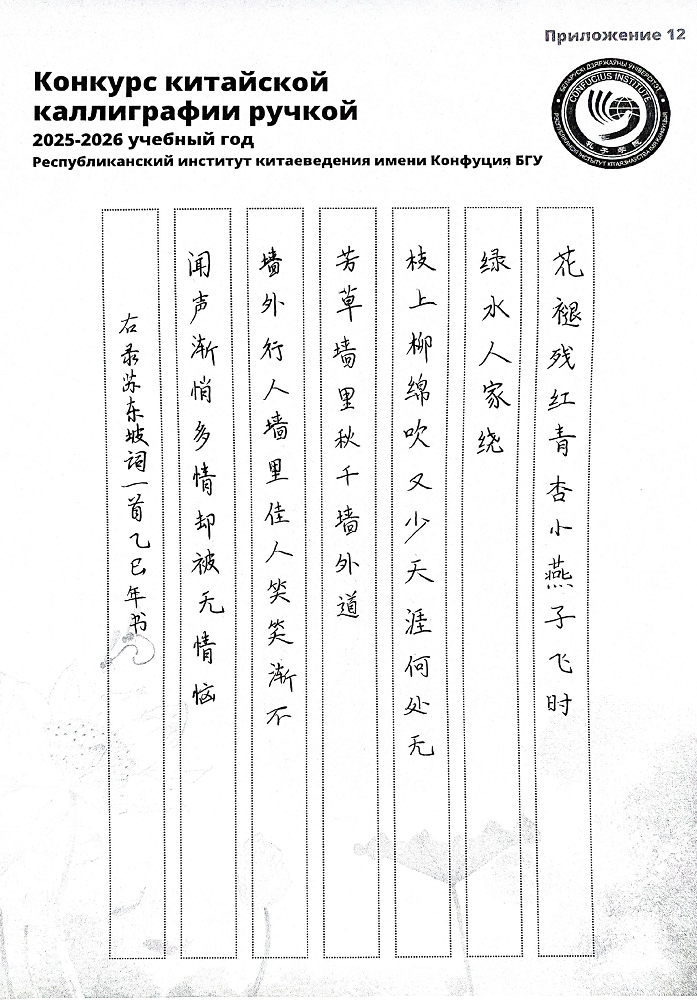 Приложение 12
Конкурс китайской
каллиграфии ручкой
2025-2026 учебный год
Республиканский институт китаеведения имени Конфуция БГУ
БЕЛАРУСКІ ДЗЯРЖАЎНЫ УНІВЕРСІТЭТ
CONFUCIUS INSTITUTE
孔子学院
花褪残红青杏小燕子飞时
绿水人家绕
枝上柳绵吹又少天涯何处无
芳草墙里秋千墙外道
墙外行人墙里佳人笑笑渐不
闻声渐悄多情却被无情恼
右录苏东坡词一首乙巳年书